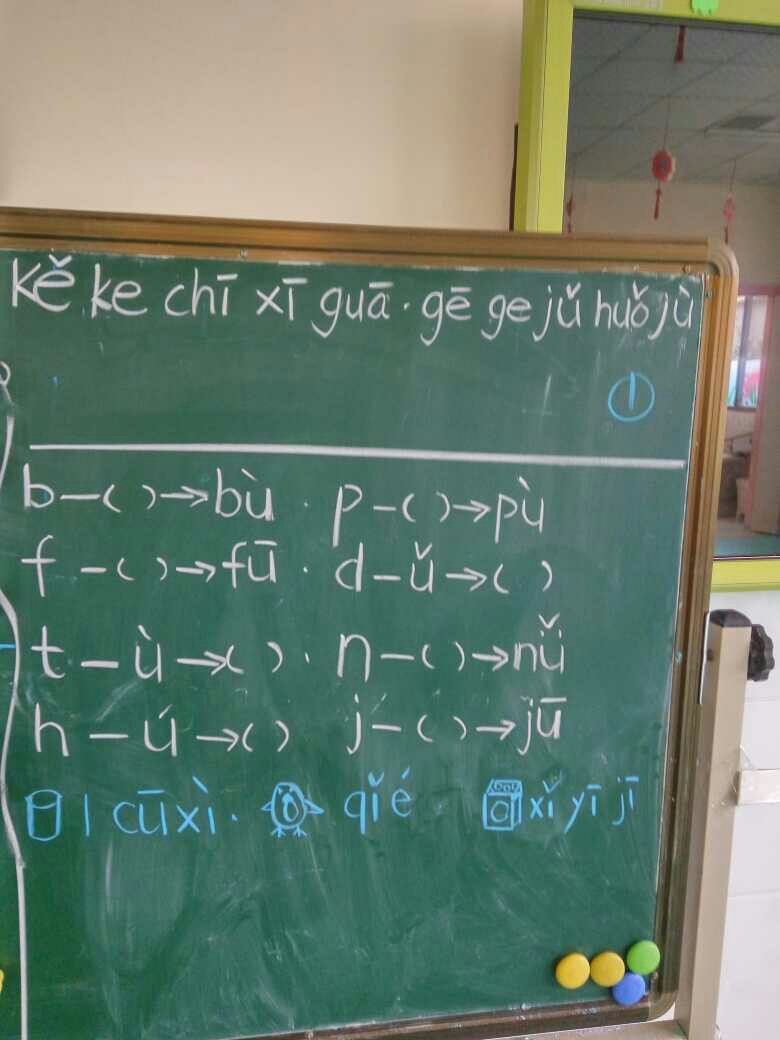 kě ke chī xī guā · gē ge jǔ huǒ jù
①
b—( )→bù · p—( )→pù
f—( )→fū · d—ǔ→( )
t—ù→( ) · n—( )→nǚ
h—ú→( ) j—( )→jū
1 cū xì · qǐ é xǐ yī jī